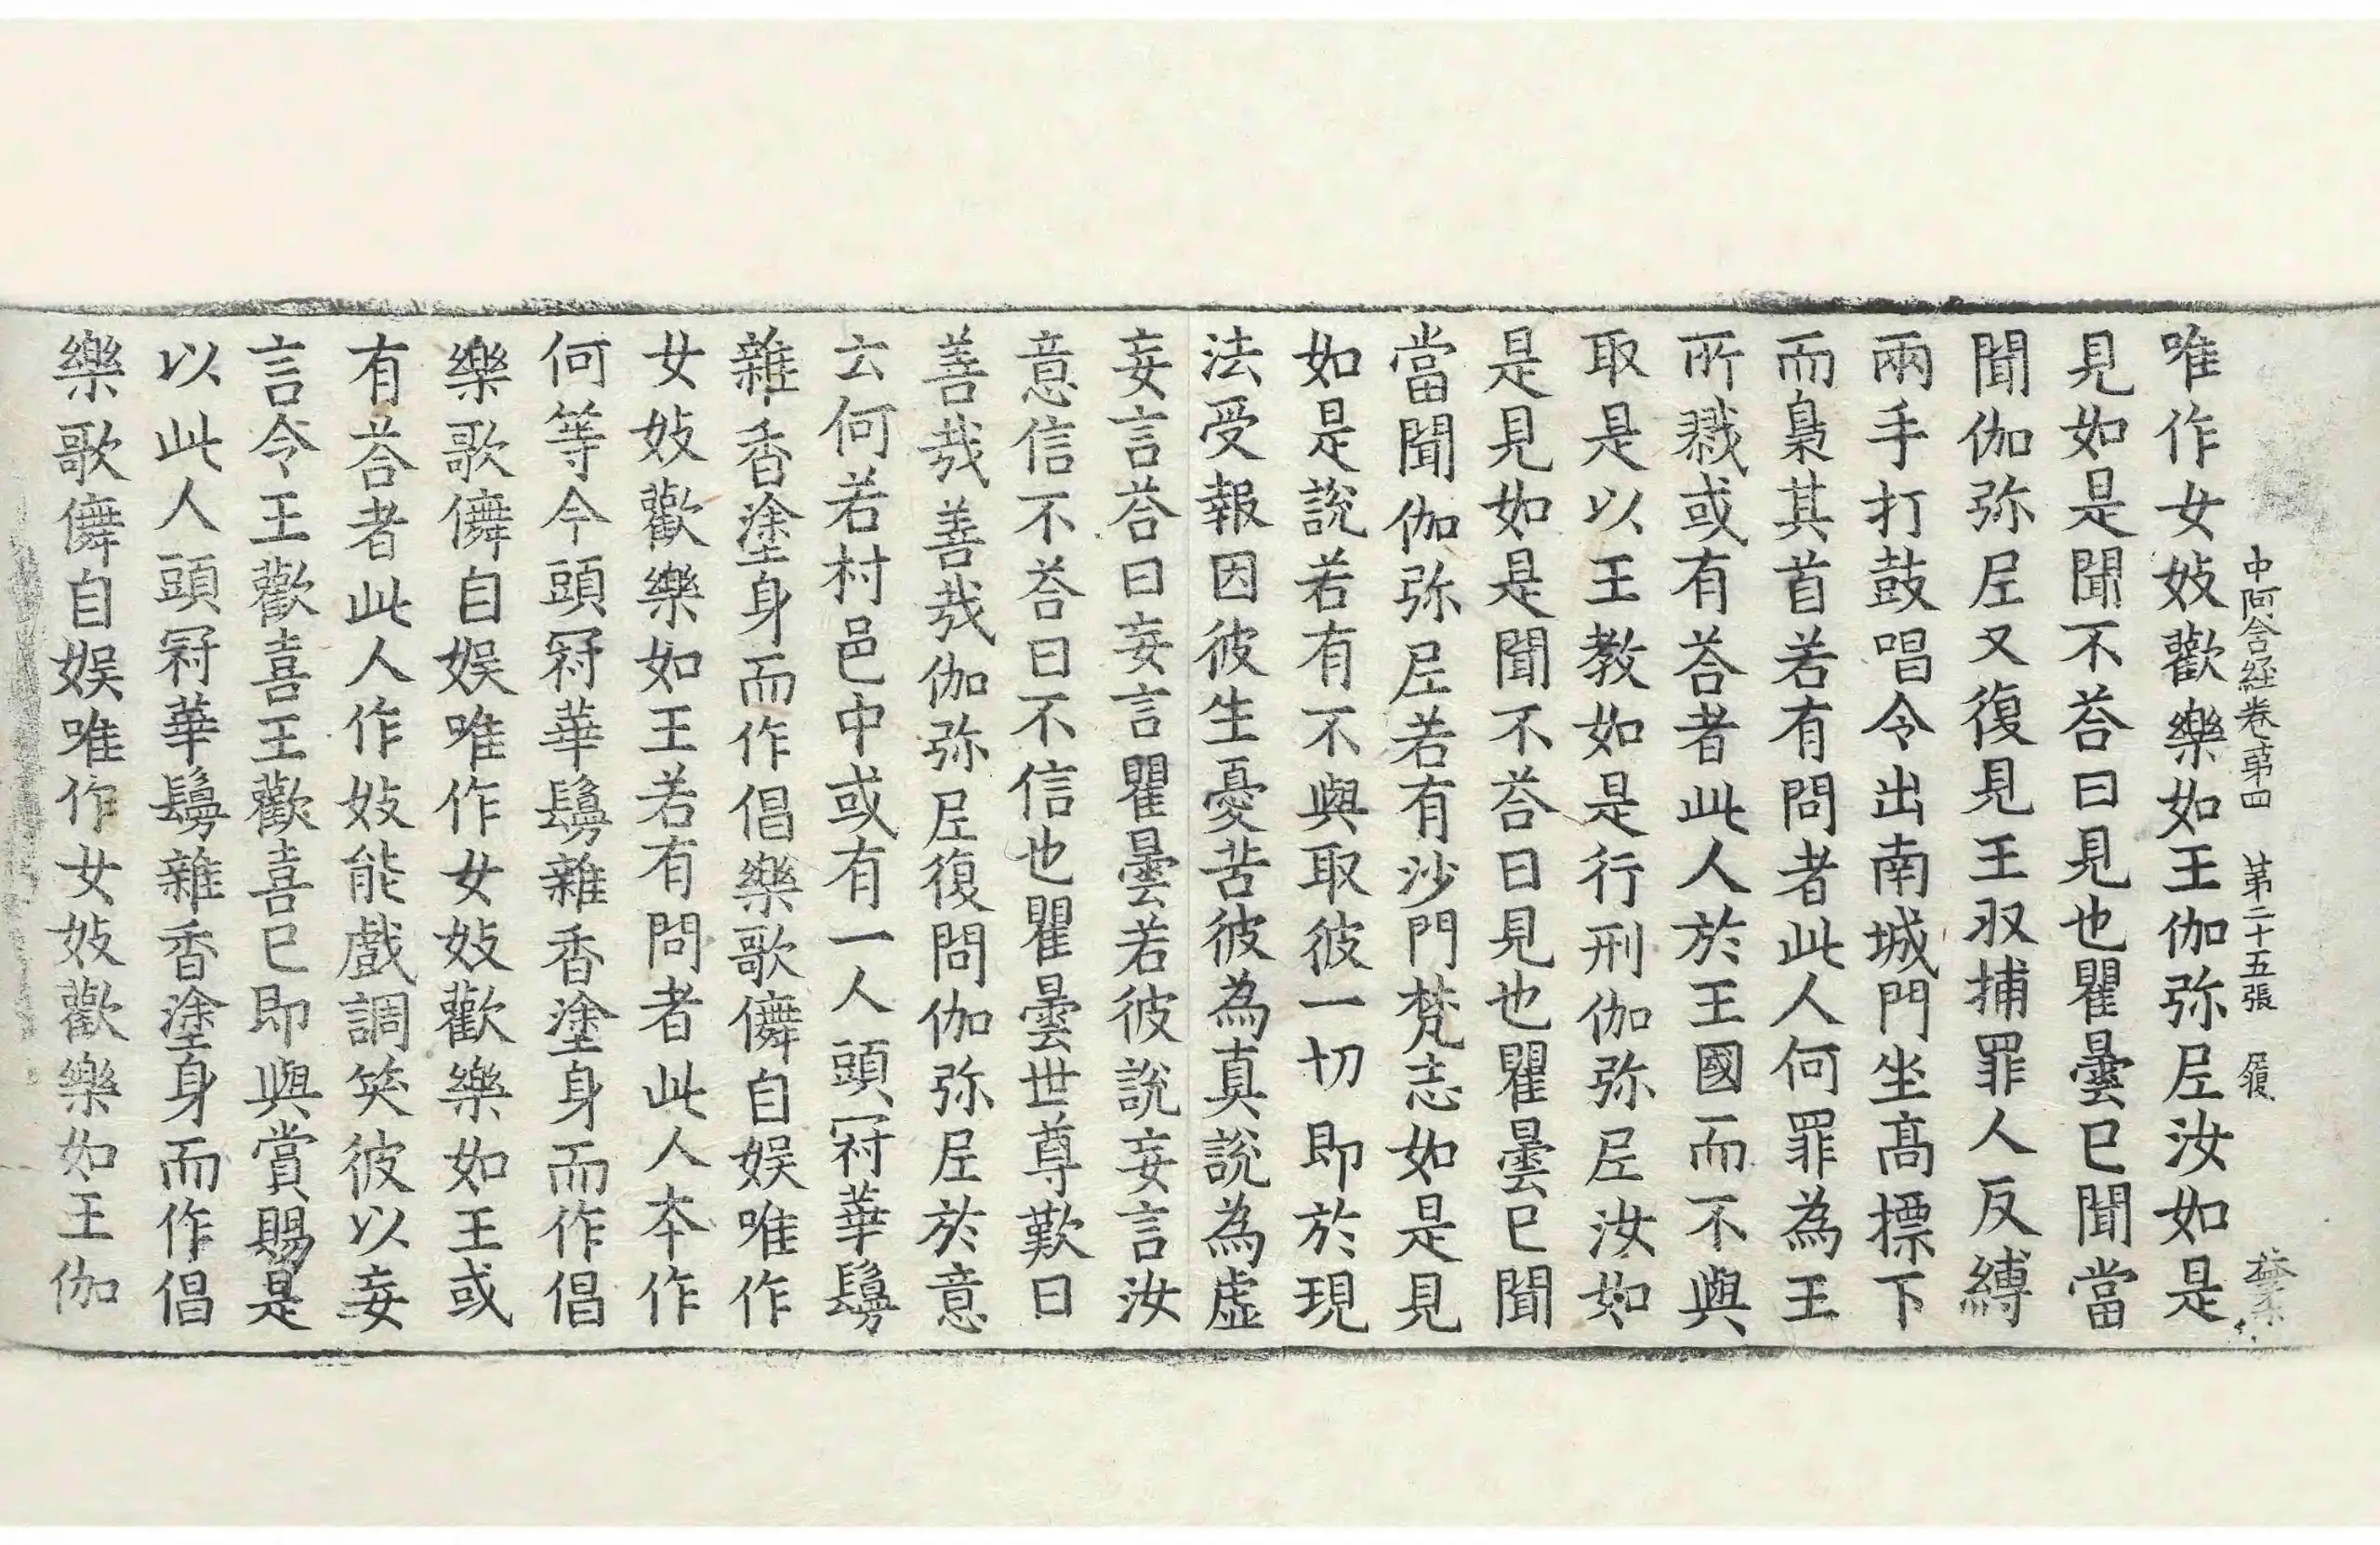 中阿含経卷第四 第二十五張 履
唯作女妓歡樂如王伽弥𡰱汝如是
見如是聞不荅曰見也瞿曇已聞當
聞伽弥𡰱又復見王収捕罪人反縛
兩手打鼓唱令出南城門坐高摽下
而梟其首若有問者此人何罪為王
所戮或有荅者此人於王國而不與
取是以王教如是行刑伽弥𡰱汝如
是見如是聞不荅曰見也瞿曇已聞
當聞伽弥𡰱若有沙門梵志如是見
如是說若有不與取彼一切即於現
法受報因彼生憂苦彼為真說為虛
妄言荅曰妄言瞿曇若彼說妄言汝
意信不荅曰不信也瞿曇世尊歎曰
善哉善哉伽弥𡰱復問伽弥𡰱於意
云何若村邑中或有一人頭冠華鬘
雜香塗身而作倡樂歌儛自娛唯作
女妓歡樂如王若有問者此人本作
何等今頭冠華鬘雜香塗身而作倡
樂歌儛自娛唯作女妓歡樂如王或
有荅者此人作妓能戲調笑彼以妄
言令王歡喜王歡喜已即與賞賜是
以此人頭冠華鬘雜香塗身而作倡
樂歌儛自娛唯作女妓歡樂如王伽